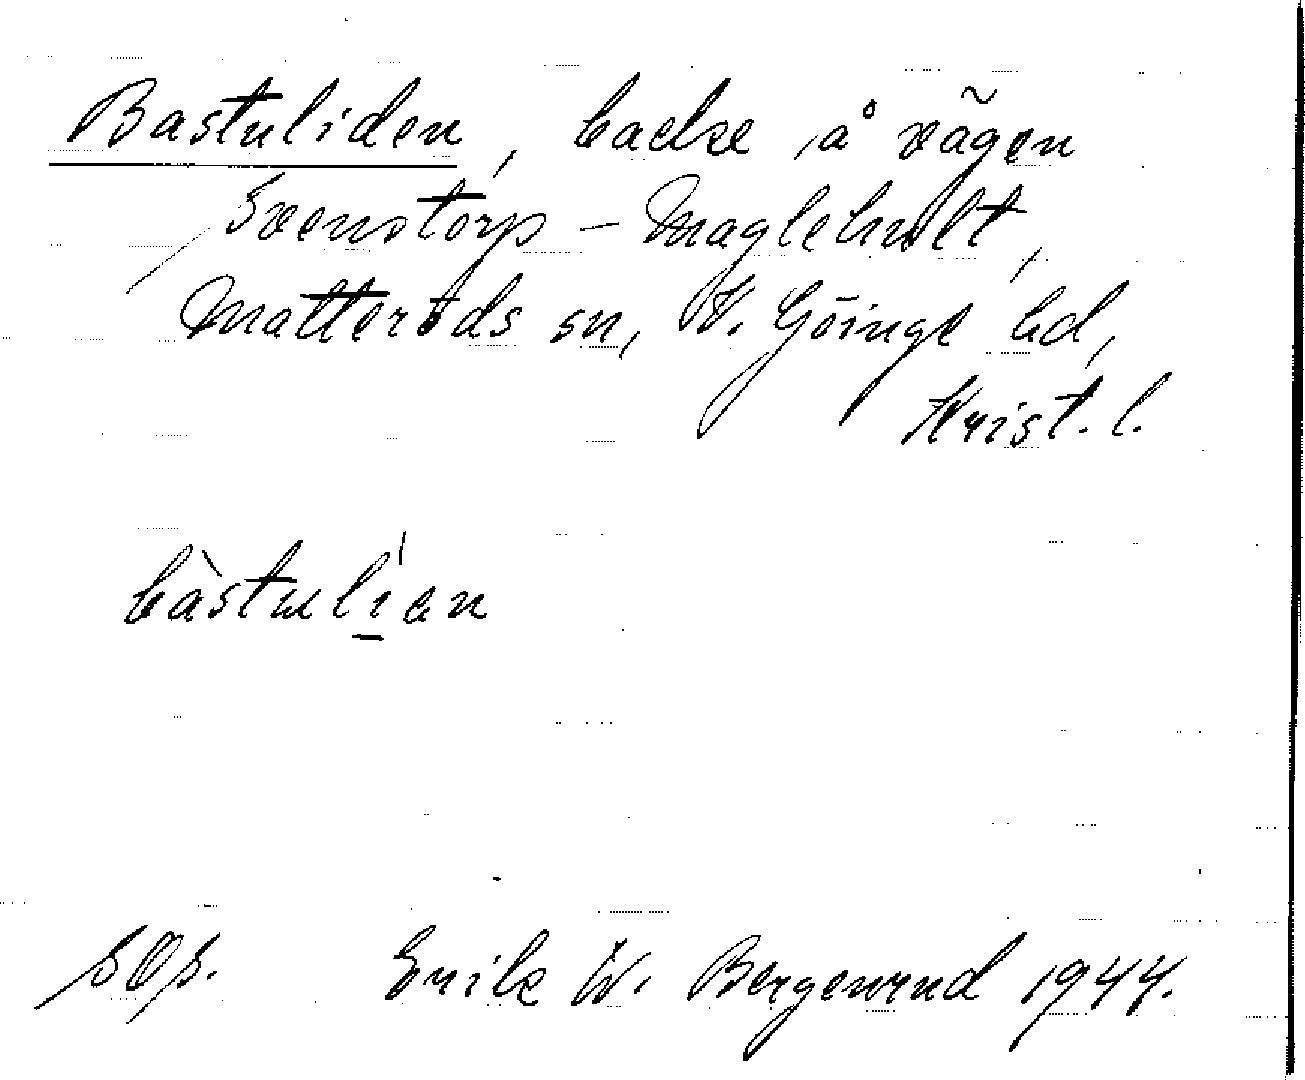 Bastuliden, backe å vägen
Svenstorp - Maglehult,
Matteröds sn, V. Göinge hd,
Krist. l.
bàstulían
Erik W. Bergenrud 1944.